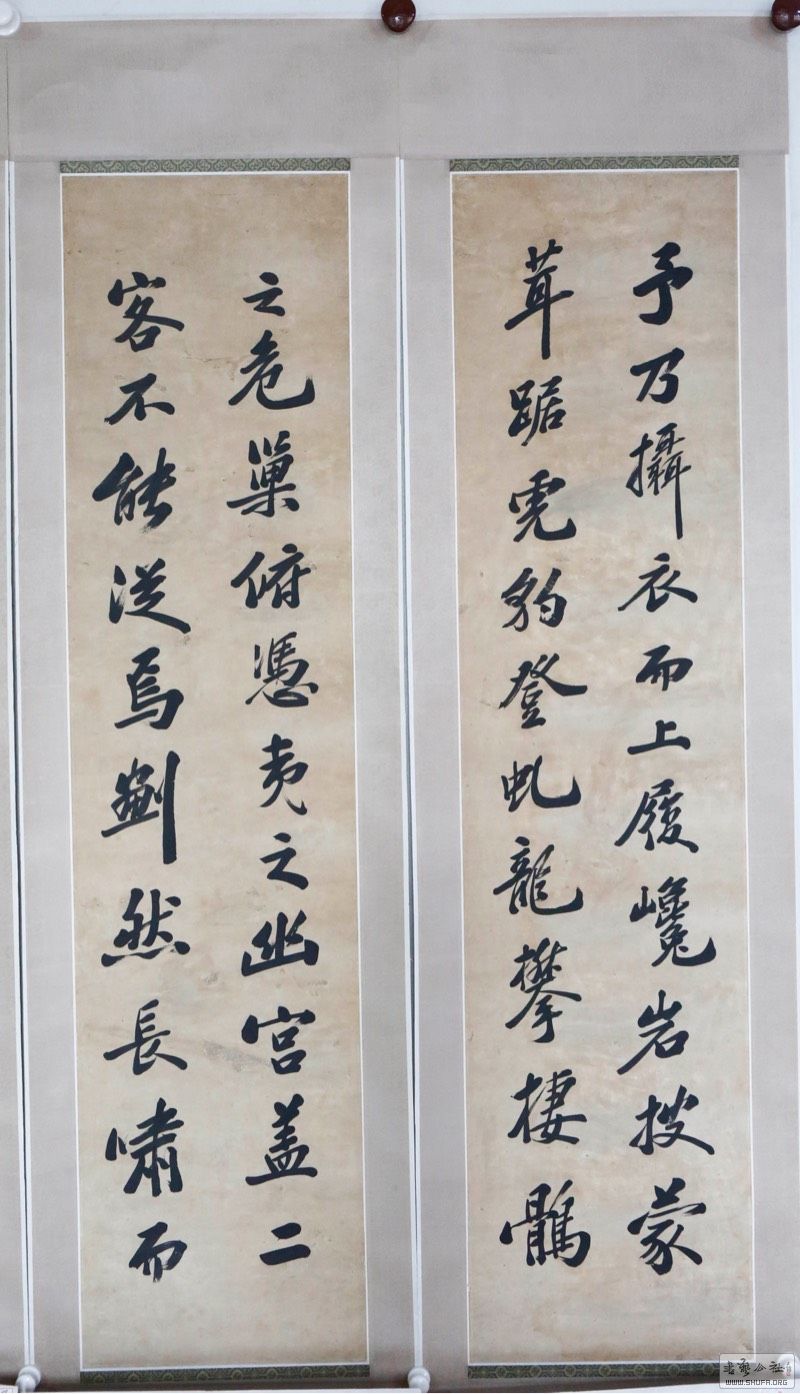 予乃攝衣而上履巉岩披蒙
茸踞虎豹登虬龍攀棲鶻
之危巢俯憑夷之幽宮盖二
客不能從焉劃然長嘯而
書藝公社
WWW.SHUFA.ORG